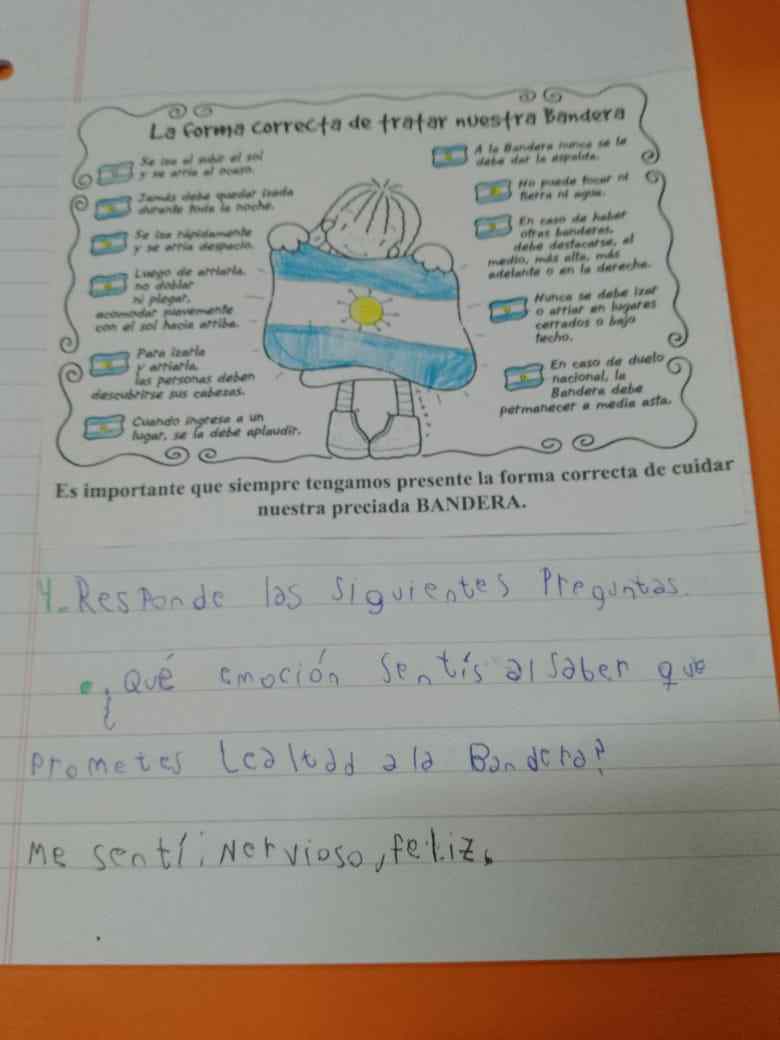 La forma correcta de tratar nuestra Bandera
Se iza al subir el sol
y se arria al ocaso.
Jamás debe quedar izada
durante toda la noche.
Se iza rápidamente
y se arria despacio.
Luego de arriarla,
no doblar
ni plegar,
acomodar suavemente
con el sol hacia arriba.
Para izarla
y arriarla,
las personas deben
descubrirse sus cabezas.
Cuando ingresa a un
lugar, se la debe aplaudir.
A la Bandera nunca se le
debe dar la espalda.
No puede tocar ni
tierra ni agua.
En caso de haber
otras banderas,
debe destacarse, al
medio, más alta, más
adelante o en la derecha.
Nunca se debe izar
o arriar en lugares
cerrados o bajo
techo.
En caso de duelo
nacional, la
Bandera debe
permanecer a media asta.
Es importante que siempre tengamos presente la forma correcta de cuidar
nuestra preciada BANDERA.
4-Responde las siguientes Preguntas.
• ¿Qué emoción sentís al saber que
prometes Lealtad a la Bandera?
Me sentí: Nervioso, feliz.